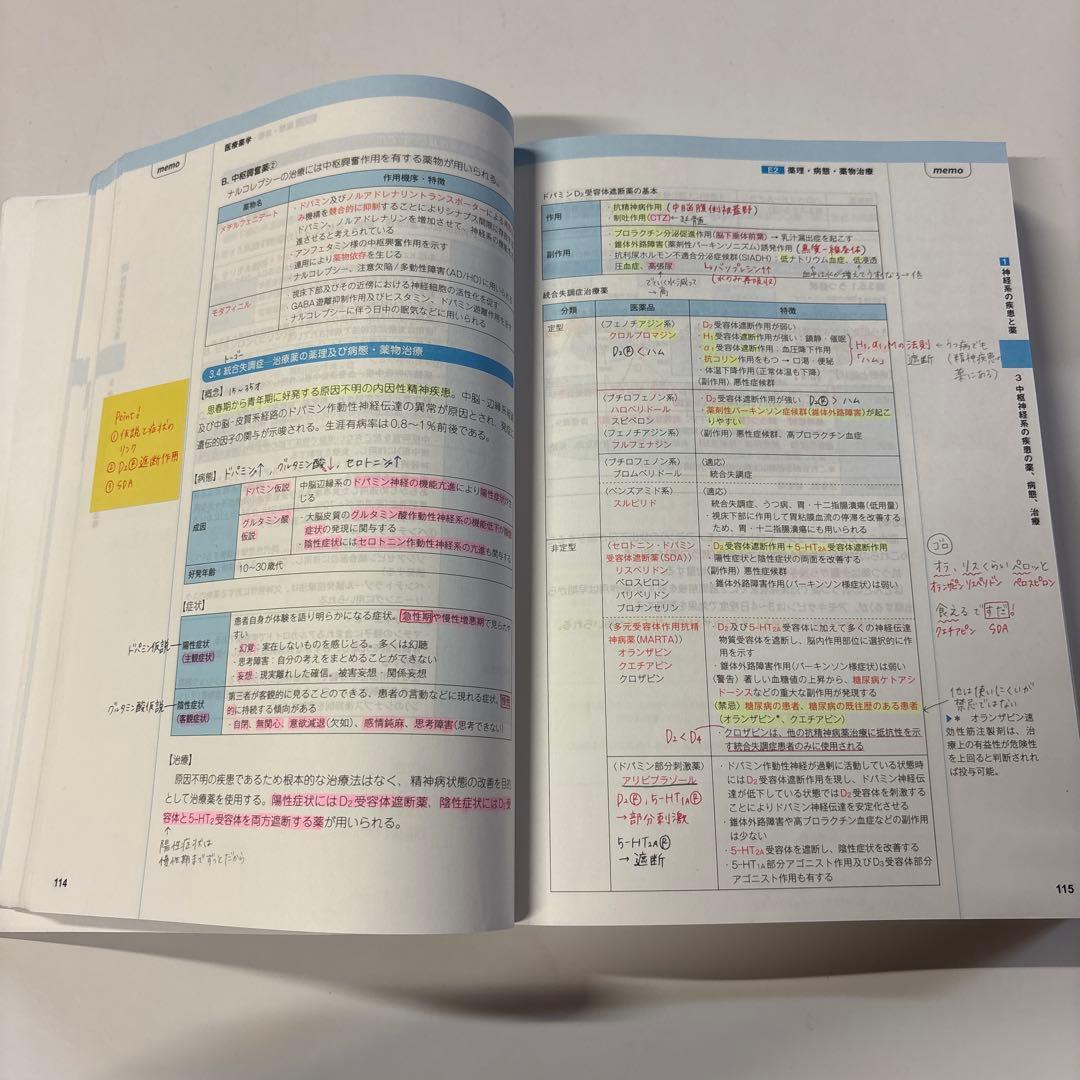 memo
医療薬学
B. 中枢興奮薬②
ナルコレプシーの治療には中枢興奮作用を有する薬物が用いられる。
薬物名
作用機序・特徴
メチルフェニデート
・ドパミン及びノルアドレナリントランスポーターによる
み機構を競合的に抑制することによりシナプス間隙に
ドパミン、ノルアドレナリンを増加させて、神経系の機能を
進させると考えられている
・アンフェタミン様の中枢興奮作用を示す
・連用により薬物依存を生じる
・ナルコレプシー、注意欠陥/多動性障害(AD/HD)に用いられる
モダフィニル
・視床下部及びその近傍における神経細胞の活性化を促す
・GABA遊離抑制作用及びヒスタミン、ドパミン遊離作用を
・ナルコレプシーに伴う日中の眠気などに用いられる
トーゴー
3.4 統合失調症―治療薬の薬理及び病態・薬物治療
【概念】 15~35才
思春期から青年期に好発する原因不明の内因性精神疾患。中脳-辺縁系
及び中脳-皮質系経路のドパミン作動性神経伝達の異常が原因とされ、発症
遺伝的因子の関与が示唆される。生涯有病率は0.8〜1%前後である。
Point!
①仮説と症状の
リンク
②D₂Ⓡ遮断作用
③SDA
【病態】 ドパミン↑, グルタミン酸↓, セロトニン↑
成因
ドパミン仮説
中脳辺縁系のドパミン神経の機能亢進により陽性症状が
じる
グルタミン酸
仮説
・大脳皮質のグルタミン酸作動性神経系の機能低下が
症状の発現に関与する
・陰性症状にはセロトニン作動性神経系の亢進も関与する
好発年齢
10〜30歳代
【症状】
ドパミン仮説
陽性症状
(主観症状)
患者自身が体験を語り明らかになる症状。急性期や慢性増悪期で見られや
すい
・幻覚：実在しないものを感じとる。多くは幻聴
・思考障害：自分の考えをまとめることができない
・妄想：現実離れした確信。被害妄想・関係妄想
グルタミン酸仮説
陰性症状
(客観症状)
第三者が客観的に見ることのできる、患者の言動などに現れる症状。慢性
的に持続する傾向がある
・自閉、無関心、意欲減退(欠如)、感情鈍麻、思考障害(思考できない)
【治療】
原因不明の疾患であるため根本的な治療法はなく、精神病状態の改善を目的
として治療薬を使用する。陽性症状にはD₂受容体遮断薬、陰性症状にはD₂受
容体と5-HT₂受容体を両方遮断する薬が用いられる。
↑
陽性症状は
慢性期までずっとだから
114
E2 薬理・病態・薬物治療
memo
ドパミンD₂受容体遮断薬の基本
作用
・抗精神病作用(中脳腹側被蓋野)
・制吐作用(CTZ)←延髄
副作用
・プロラクチン分泌促進作用(脳下垂体前葉)→乳汁漏出症を起こす
・錐体外路障害(薬剤性パーキンソニズム)誘発作用(黒質-線条体)
・抗利尿ホルモン不適合分泌症候群(SIADH)：低ナトリウム血症、低浸透
圧血症、高張尿
↳バソプレシン↑↑
(水のみ再吸収)
統合失調症治療薬
分類
医薬品
特徴
定型
(フェノチアジン系)
クロルプロマジン
D₂Ⓡ<ハム
・D₂受容体遮断作用が弱い
・H₁受容体遮断作用が強い：鎮静・催眠
・α₁受容体遮断作用：血圧降下作用
・抗コリン作用をもつ→口渇・便秘
・体温下降作用(正常体温も下降)
(副作用)悪性症候群
H₁,α₁,Mの法則
「ハム」
←うつ病でも
遮断
(精神疾患の
薬にある)
(ブチロフェノン系)
ハロペリドール
スピペロン
(フェノチアジン系)
フルフェナジン
・D₂受容体遮断作用が強い D₂Ⓡ>ハム
・薬剤性パーキンソン症候群(錐体外路障害)が起こ
りやすい
(副作用)悪性症候群、高プロラクチン血症
(ブチロフェノン系)
ブロムペリドール
(適応)
統合失調症
(ベンズアミド系)
スルピリド
(適応)
統合失調症、うつ病、胃・十二指腸潰瘍(低用量)
・視床下部に作用して胃粘膜血流の停滞を改善する
ため、胃・十二指腸潰瘍にも用いられる
非定型
(セロトニン・ドパミン
受容体遮断薬(SDA))
リスペリドン
ペロスピロン
パリペリドン
ブロナンセリン
・D₂受容体遮断作用+5-HT₂A受容体遮断作用
・陽性症状と陰性症状の両面を改善する
(副作用)悪性症候群
錐体外路障害作用(パーキンソン様症状)は弱い
(多元受容体作用抗精
神病薬(MARTA))
オランザピン
クエチアピン
クロザピン
D₂<D₄
・D₂及び5-HT₂A受容体に加えて多くの神経伝達
物質受容体を遮断し、脳内作用部位に選択的に作
用を示す
・錐体外路障害作用(パーキンソン様症状)は弱い
(警告)著しい血糖値の上昇から、糖尿病ケトアシ
ドーシスなどの重大な副作用が発現する
(禁忌)糖尿病の患者、糖尿病の既往歴のある患者
(オランザピン*、クエチアピン)
・クロザピンは、他の抗精神病薬治療に抵抗性を示
す統合失調症患者のみに使用される
(ドパミン部分刺激薬)
アリピプラゾール
D₂Ⓡ,5-HT₁AⓇ
→部分刺激
5-HT₂AⓇ
→遮断
・ドパミン作動性神経が過剰に活動している状態時
にはD₂受容体遮断作用を現し、ドパミン神経伝
達が低下している状態ではD₂受容体を刺激する
ことによりドパミン神経伝達を安定化させる
・錐体外路障害や高プロラクチン血症などの副作用
は少ない
・5-HT₂A受容体を遮断し、陰性症状を改善する
・5-HT₁A部分アゴニスト作用及びD₃受容体部分
アゴニスト作用も有する
ゴロ
オラ、リスくらいペロッと
オランザピン リスペリドン ペロスピロン
食えるですだ!
クエチアピン SDA
他は使いにくいが
禁忌ではない
▶* オランザピン速
効性筋注製剤は、治
療上の有益性が危険性
を上回ると判断されれ
ば投与可能。
1 神経系の疾患と薬
3 中枢神経系の疾患の薬、病態、治療
115